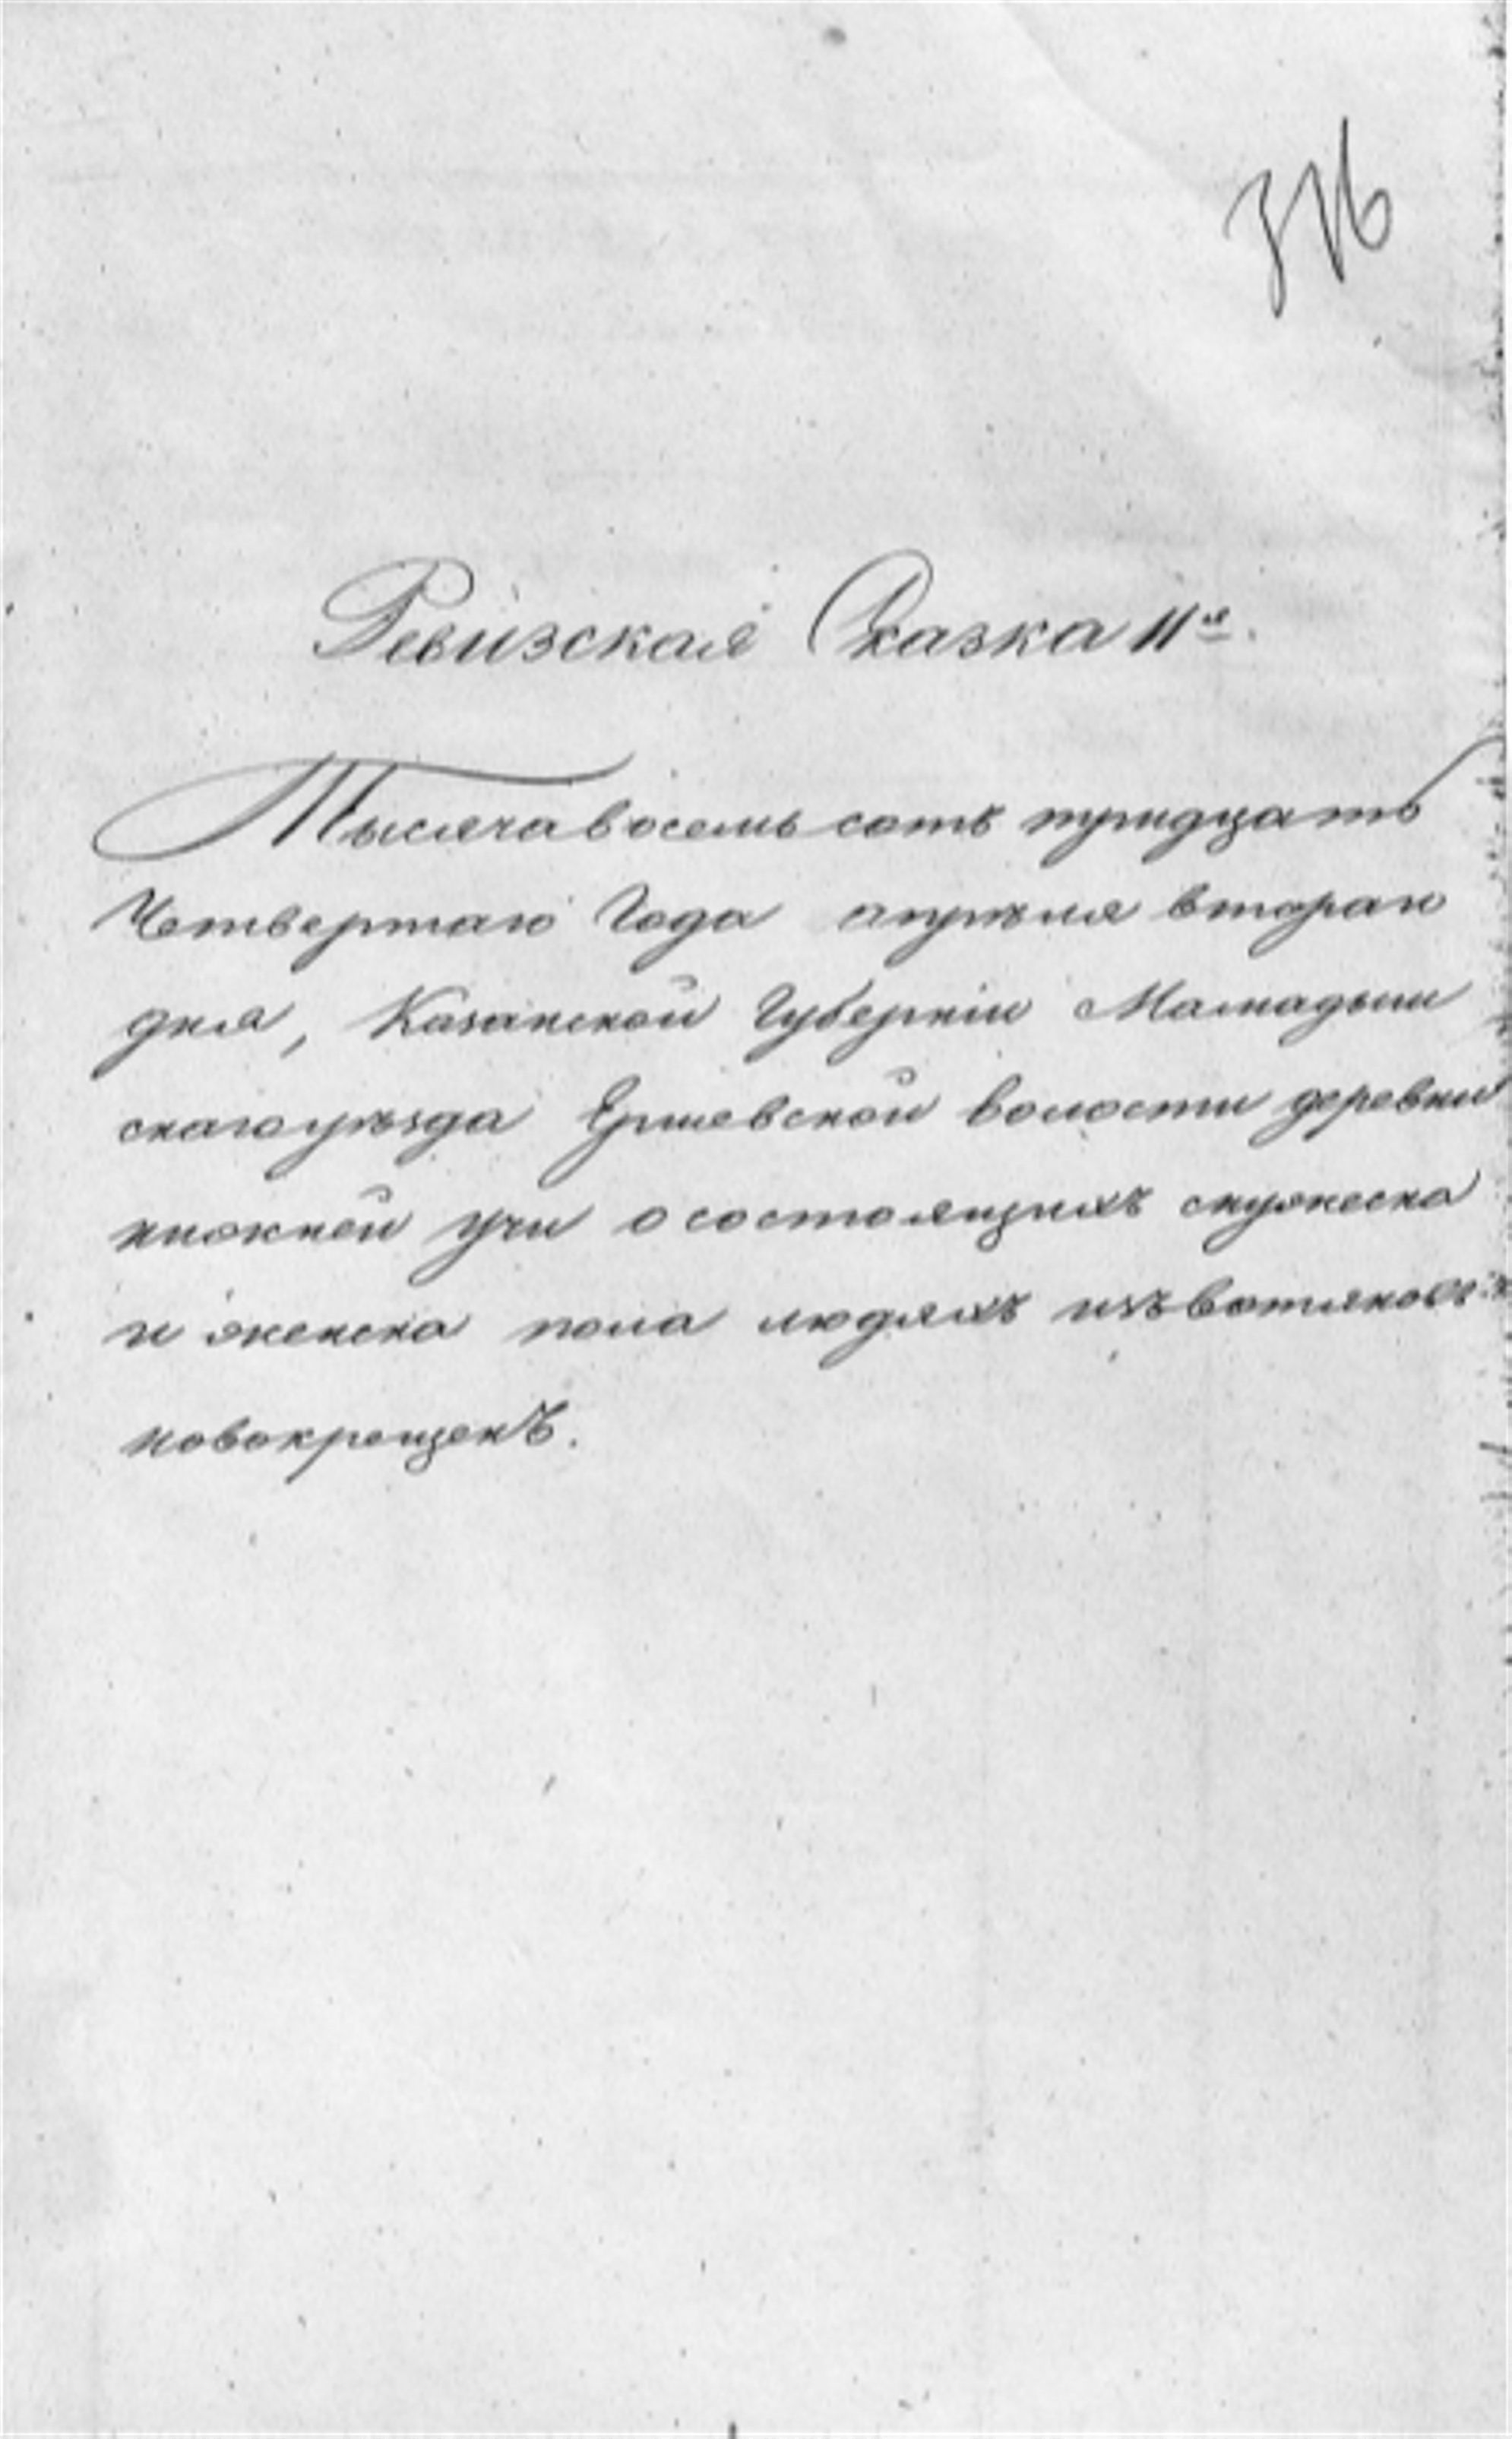 376
Ревизская Сказка 11я.
Тысяча восемь сотъ тридцать
Четвертаго Года апреля втораго
дня, Казанской Губернiи Мамадыш
скаго уъзда Ершевской волости деревни
нижней учи о состоящихъ мужеска
и женска пола людяхъ изъ вотяковъ
новокрещенъ.